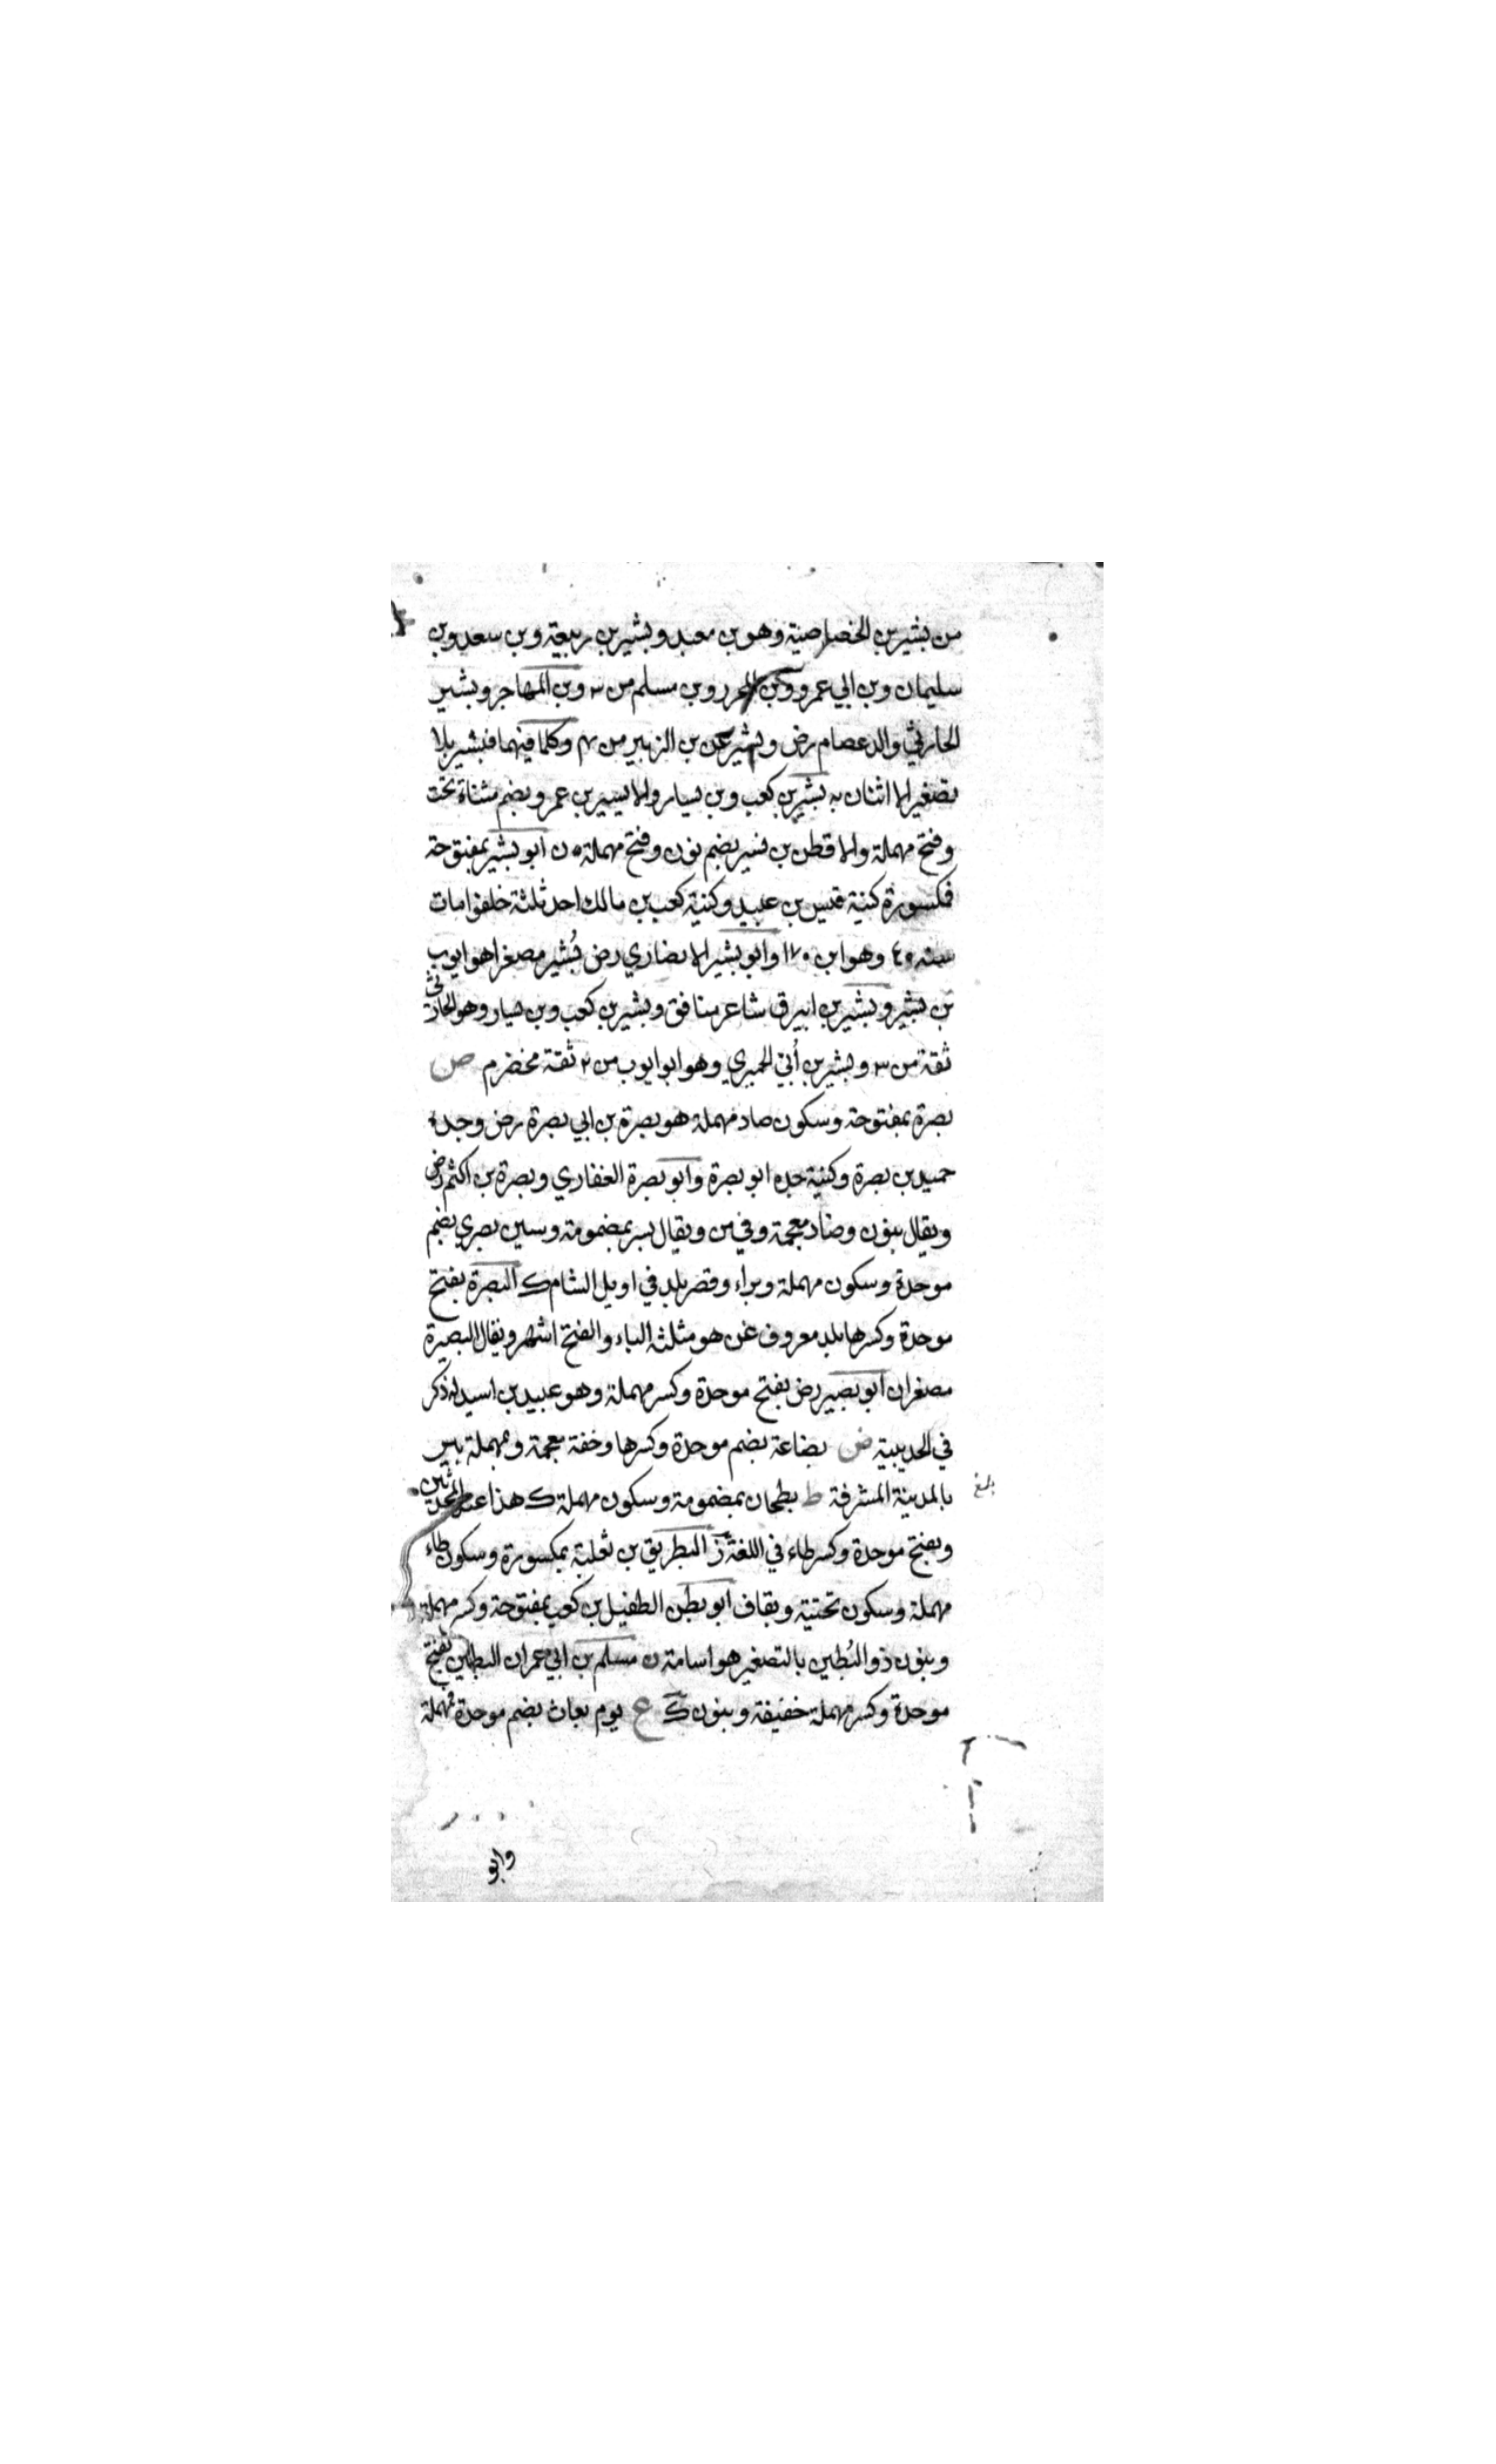 من بشير بن الخصاصية وهو بن معبد وبشير بن ربيعة وبن سعد وبن
سليمان وبن ابي عمرو وبن المحرر وبن مسلم من ٣ وبن المهاجر وبشير
الحارثي والد عصام رض وبشير بن الزبير من ٣ وكلما فيهما فبشير بلا
تصغير الا اثنان به بشير بن كعب وبن يسار والا يسير بن عمرو بضم مثناة تحت
وفتح مهملة والا قطن بن نسير بضم نون وفتح مهملة ٥ ن ابو بشير بمفتوحة
فمكسورة كنية قيس بن عبيد وكنية كعب بن مالك احد ثلثة خلفوا مات
سنه ٤٥ وهو ابن ١٧٠ وابو بشير الانصاري رض بُشير مصغرا هو ايوب
بن بشير وبشير بن ابيرق شاعر منافق وبشير بن كعب وبن يسار وهو الحارثي
ثقة من ٣ وبشير بن أبي الحميري وهو ابو ايوب من ٢ ثقة مخضرم ص
بصرة بمفتوحة وسكون صاد مهملة هو بصرة بن ابي بصرة رض وجده
حميد بن بصرة وكنية جده ابو بصرة وابو بصرة الغفاري وبصرة بن اكثم رض
ويقال بنون وضاد معجمة وفي س ويقال بسر بمضمومة وسين بصري بضم
موحدة وسكون مهملة وبراء وقصر بلد في اويل الشام ك البصرة بفتح
موحدة وكسرها بلد معروف غن هو مثلثه الباء والفتح اشهر ويقال البصيرة
مصغرا ن ابو بصير رض بفتح موحدة وكسر مهملة وهو عبيد بن اسيد له ذكر
في الحديبية ض بضاعة بضم موحدة وكسرها وخفة معجمة وبمهملة بير
بالمدينة المشرفة ط بطحان بمضمومة وسكون مهملة ك هذا عند المحدثين
بلغ
وبفتح موحدة وكسر طاء في اللغة ز البطريق بن ثعلبة بمكسورة وسكون طاء
مهملة وسكون تحتية وبقاف ابو بطن الطفيل بن كعب بمفتوحة وكسر مهملة
وبنون ذو البُطين بالتصغير هو اسامة ن مسلم بن ابي عمران البطين بفتح
موحدة وكسر مهملة خفيفة وبنون ك ع يوم بعاث بضم موحدة فمهملة
وابو